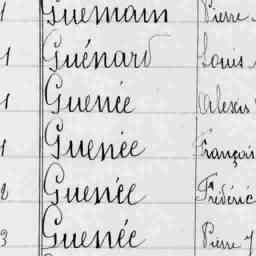 1 Guemain Pierre
1 Guénard Louis
1 Guenée Alexis
1 Guenée François
2 Guenée Frédéric
3 Guenée Pierre J